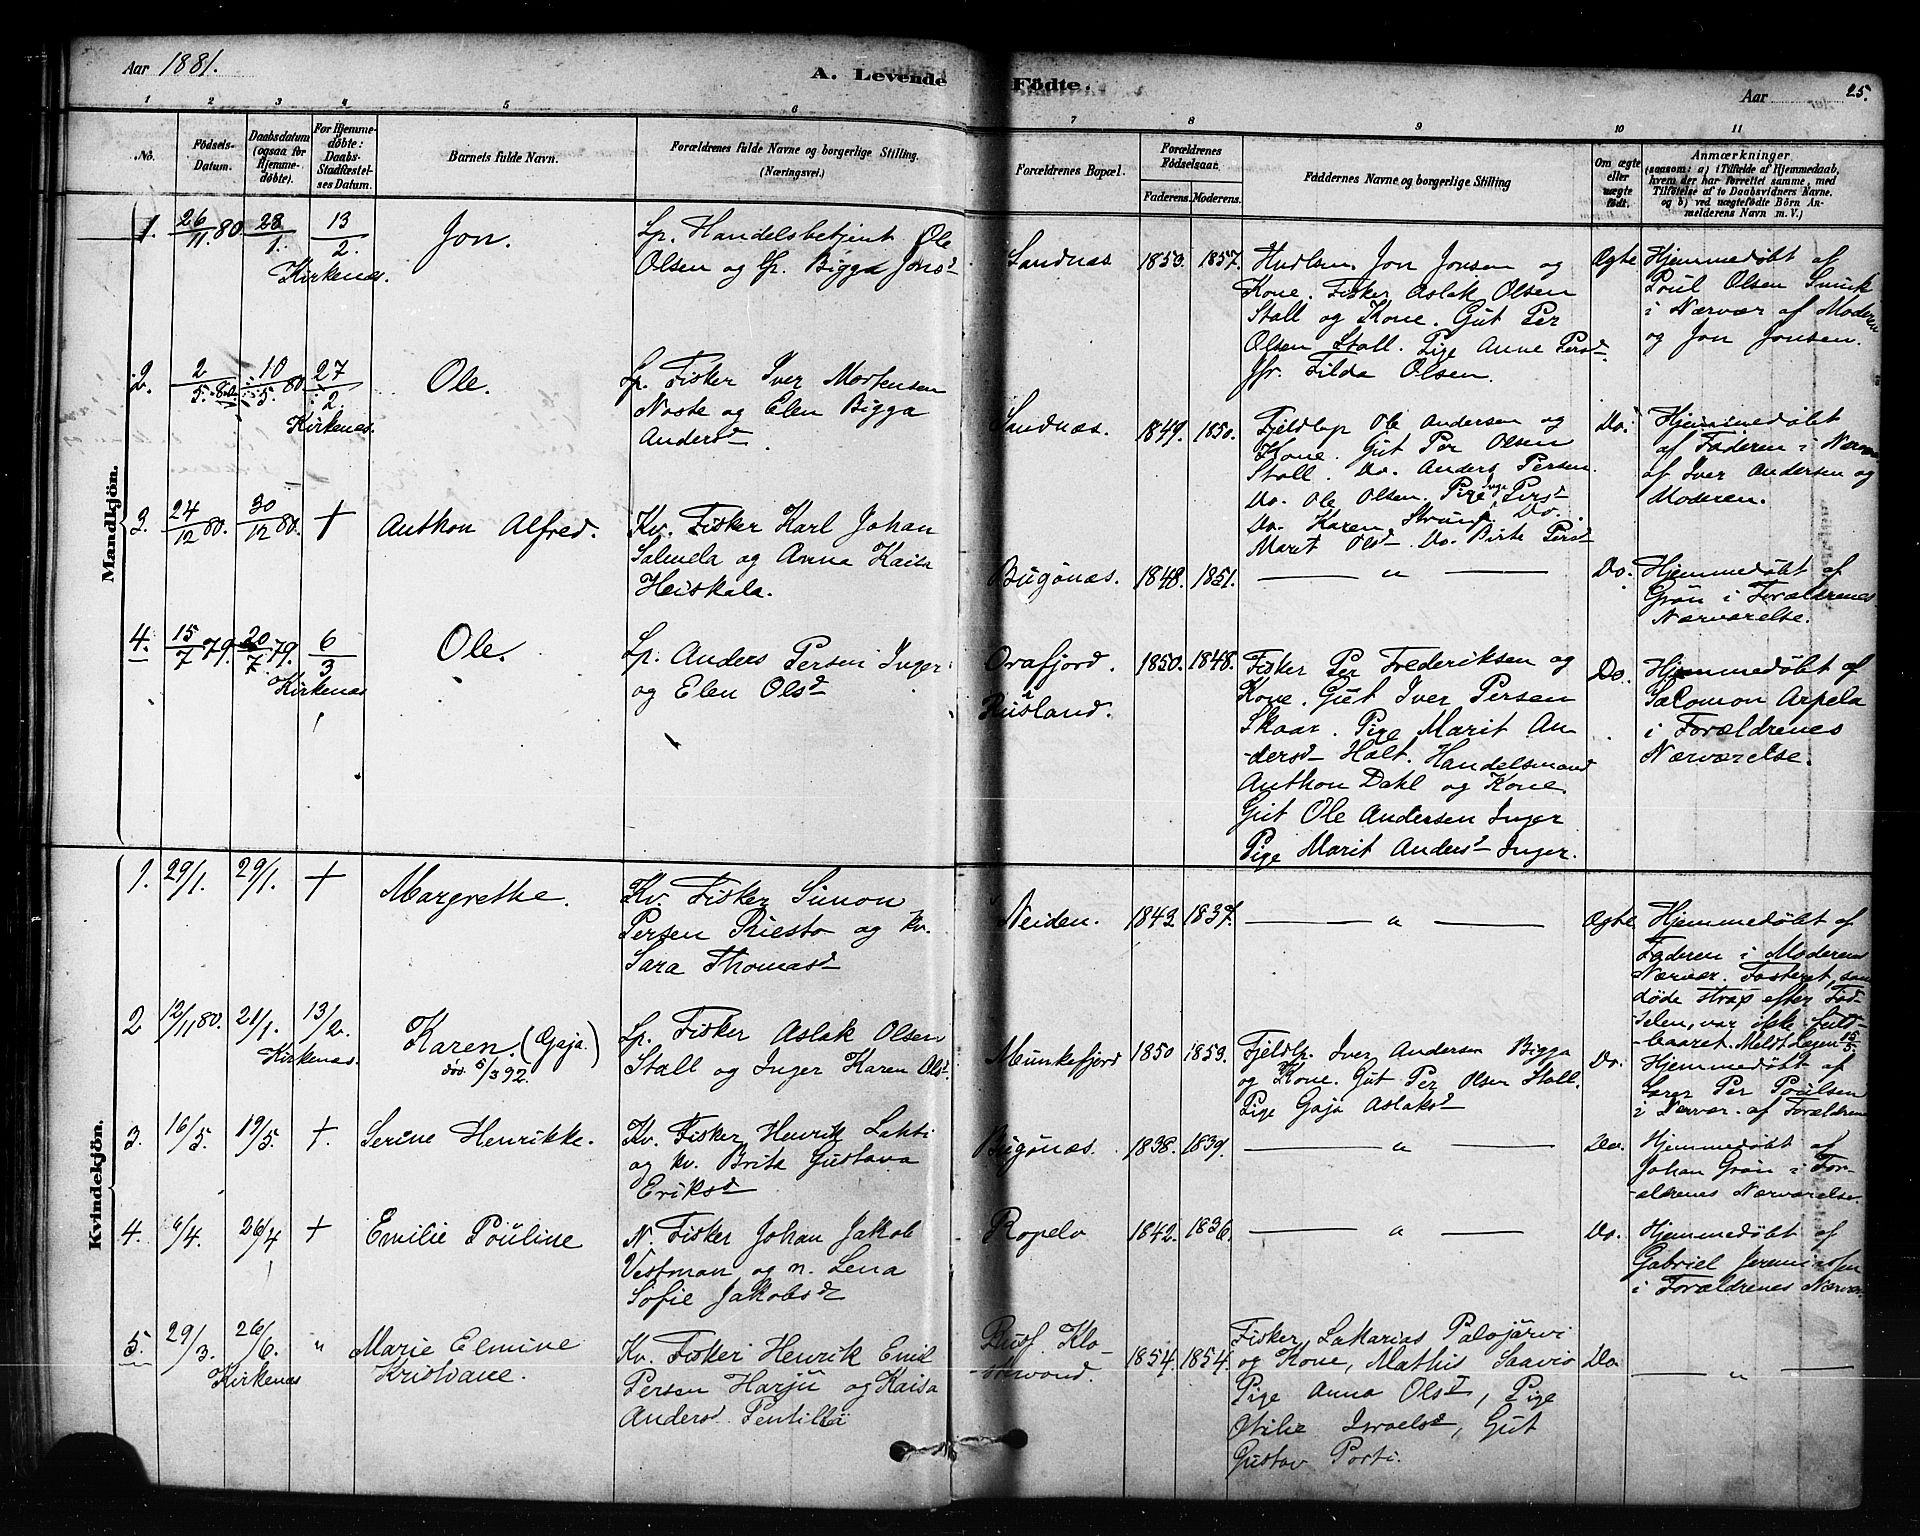 Aar 1881.
A. Levende Födte.
Aar 25.
1 2 3 4 5 6 7 8 9 10 11
No.
Födsels-
Datum.
Daabsdatum
(ogsaa for
Hjemme-
døbte).
For Hjemme-
døbte:
Daabs-
Stadfæstel-
ses Datum.
Barnets fulde Navn.
Forældrenes fulde Navne og borgerlige Stilling.
(Næringsvei.)
Forældrenes Bopæl.
Forældrenes
Födselsaar.
Faderens. Moderens.
Faddernes Navne og borgerlige Stilling
Om ægte
eller
uægte
født.
Anmærkninger
(saasom: a) i Tilfælde af Hjemmedaab,
hvem der har forrettet samme, med
Tilføielse af to Daabsvidners Navne.
og b) ved uægtefødte Börn An-
melderens Navn m. V.)
Mandkjön.
1. 26/11 80. 28/1. 13/2. Kirkenæs.
Jon.
Lp. Handelsbetjent Ole
Olsen og Lp. Bigga Jonsd
Sandnæs 1850. 1857.
Jon Jonsen og
Kone. Fisker Aslak Olsen
Stall og Kone. Gut Per
Olsen Stall. Pige Anne Persd
Jfr. Tilda Olsen.
Ægte
Hjemmedøbt af
Poul Olsen
i Nærvær af Moderen
og Jon Jonsen.
2. 2/5. 80. 10/5. 80 27/2 Kirkenæs.
Ole.
Lp. Fisker Iver Mortensen
Noste og Elen Bigga
Andersd
Sandnæs. 1849. 1850.
Fjeldlap Ole Andersen og
Kone. Gut Per Olsen
Stall. Do. Anders Persen.
Do. Ole Olsen. Pige Inge Persd
Do. Karen Do.
Marit Olsd Do. Birte Persd
Do.
Hjemmedøbt
af Faderen i Nærvær
af Iver Andersen og
Moderen.
3. 24/12 80. 30/12 80. +
Anthon Alfred.
Kv. Fisker Karl Johan
Salmela og Anna Kaisa
Heiskala.
Bugønæs. 1848. 1851.
— " —
Do.
Hjemmedøbt af
Grön i Forældrenes
Nærværelse.
4. 15/7 79. 20/7 79. 6/3 Kirkenæs
Ole.
Lp. Anders Persen Inger
og Elen Olsd
Orafjord.
i
Rusland.
1850. 1848.
Fisker Per Frederiksen og
Kone. Gut Iver Persen
Skaar. Pige Marit An
-dersd Holt. Handelsmand
Anthon Dahl og Kone.
Gut Ole Andersen Inger
Pige Marit Andersd Inger.
Do.
Hjemmedøbt af
Salomon Arpela
i Forældrenes
Nærværelse.
Kvindekjön.
1. 29/1. 29/1. +
Margrethe.
Kv. Fisker Simon
Persen Priesto og kv.
Sara Thomasd
Neiden. 1842 1837.
— " —
Ægte
Hjemmedøbt af
Faderen i Moderens
Nærvær. Fosteret, som
døde strax efter Föd-
selen, var ikke fuld-
-baaret.
2 12/11 80. 21/1. 13/2. Kirkenæs.
Karen. (Gaja.)
död 5/3 92.
Lp. Fisker Aslak Olsen
Stall og Inger Karen Olsd
Munkefjord 1850 1853.
Fjeldlp. Iver Andersen Bigga
og Kone. Gut Per Olsen Stall.
Pige Gaja Aslaksd
Do.
Hjemmedøbt af
Lærer Per Poulsen
i Nærvær. af Forældrene
3. 16/5. 19/5. +.
Serine Henrikke.
Kv. Fisker Henrik Lahti
og kv. Brita Gustava
Eriksd
Bugønæs. 1838. 1839.
— " —
Do.
Hjemmedøbt af
Johan Grön i For-
-ældrenes Nærværelse.
4. 6/4. 26/4 +
Emilie Pouline
N. Fisker Johan Jakob
Vestman og n. Lena
Sofie Jakobsd
Ropelv 1842. 1836.
— " —
Do.
Hjemmedøbt af
Gabriel Jeremiassen
i Forældrenes Nærvær.
5. 29/3. 26/6. Kirkenæs "
Marie Elmine
Kristiane.
Kv. Fisker Henrik Emil
Persen Harju og Kaisa
Andersd Pentillä
Russ. Klo-
-stervand.
1854. 1854.
Fisker Zakarias Palojärvi
og Kone, Mathis Saavio
Pige Anna Olsd, Pige
Otilie Israelsd, Gut
Gustav Porti.
Do.
— " —